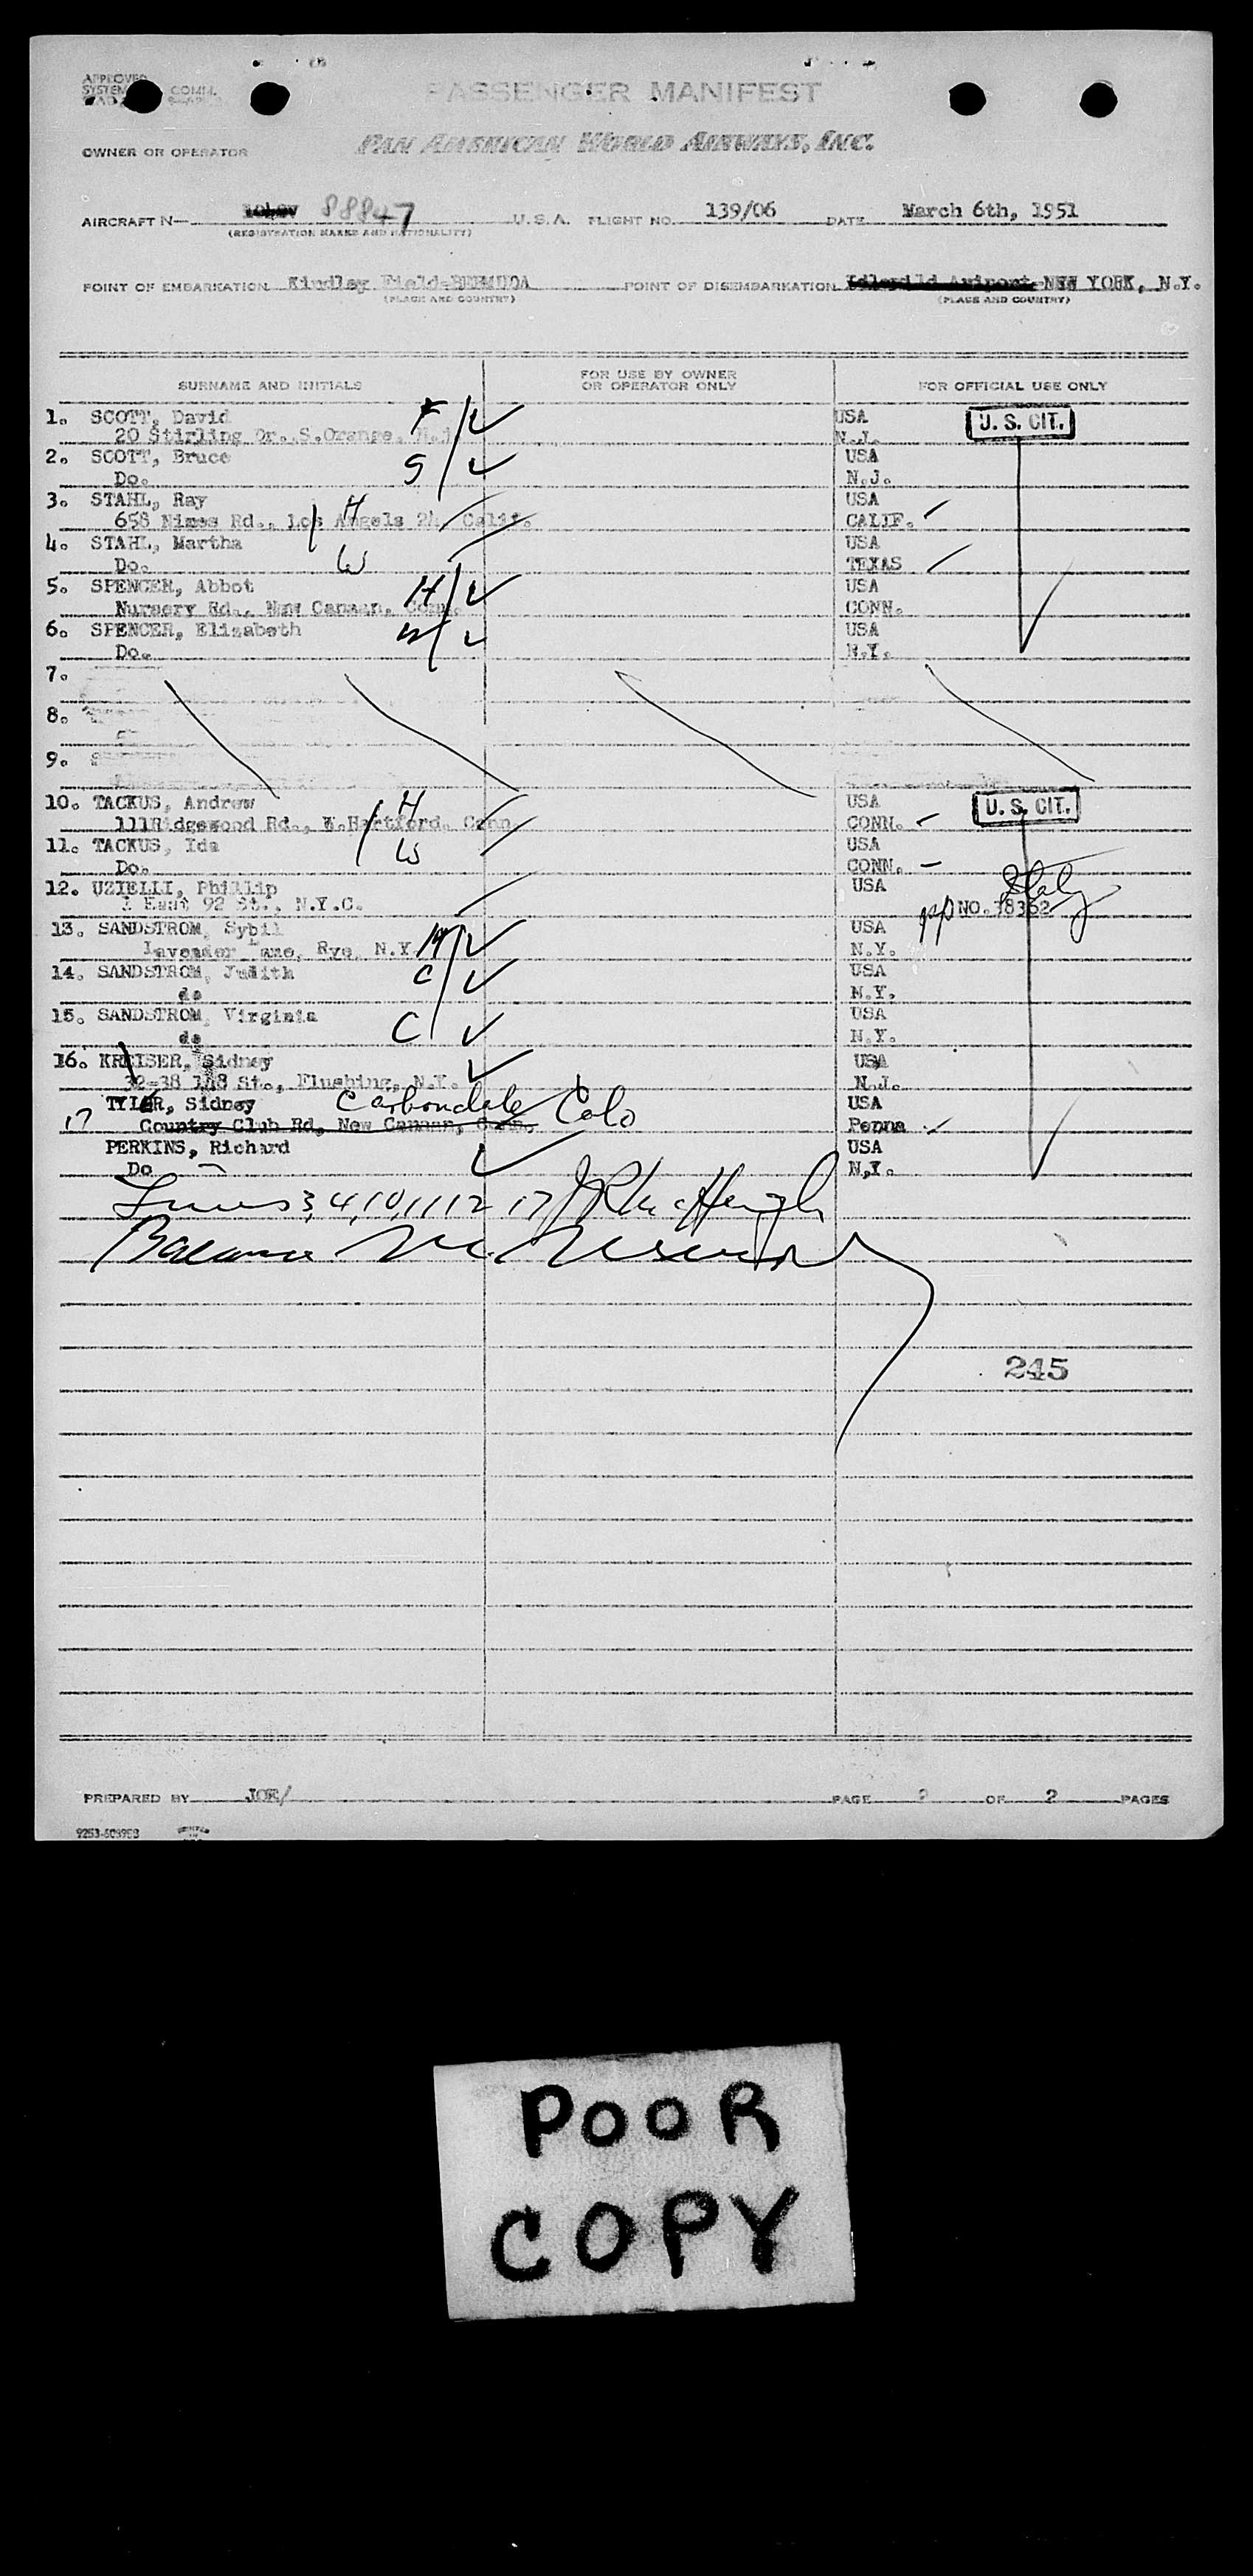 APPROVED
SYSTEM COMM.
PASSENGER MANIFEST
PAN AMERICAN WORLD AIRWAYS, INC.
OWNER OR OPERATOR
AIRCRAFT N— 88847 U.S.A. FLIGHT NO. 139/06 DATE March 6th, 1951
(REGISTRATION MARKS AND NATIONALITY)
POINT OF EMBARKATION Kindley Field-BERMUDA POINT OF DISEMBARKATION Idlewild Aviport-NEW YORK, N.Y.
(PLACE AND COUNTRY) (PLACE AND COUNTRY)
SURNAME AND INITIALS FOR USE BY OWNER OR OPERATOR ONLY FOR OFFICIAL USE ONLY
1. SCOTT, David F USA U. S. CIT.
20 Stirling Dr., S.Orange, N.J. N.J.
2. SCOTT, Bruce S USA
Do. N.J.
3. STAHL, Ray H USA
658 Nimes Rd., Los Angels 24, Calif. CALIF.
4. STAHL, Martha W USA
Do. TEXAS
5. SPENCER, Abbot H USA
Nursery Rd., New Canaan, Conn. CONN.
6. SPENCER, Elizabeth W USA
Do. N.Y.
7.
8.
9.
10. TACKUS, Andrew H USA U. S. CIT.
111Ridgewood Rd., W.Hartford, Conn CONN.
11. TACKUS, Ida W USA
Do. CONN.
12. UZIELLI, Phillip USA Italy
1 East 92 St., N.Y.C. pp NO.38362
13. SANDSTROM, Sybil M USA
Lavender Lane, Rye, N.Y. N.Y.
14. SANDSTROM, Judith C USA
do N.Y.
15. SANDSTROM, Virginia C USA
do N.Y.
16. KREISER, Sidney USA
32-38 148 St., Flushing, N.Y. N.J.
TYLER, Sidney Carbondale Colo USA
17 Country Club Rd, New Canaan, Conn. Penna
PERKINS, Richard USA
Do N.Y.
Lines 3, 4, 10, 11 12 17
Balance
245
PREPARED BY JOE/ PAGE 2 OF 2 PAGES
POOR
COPY